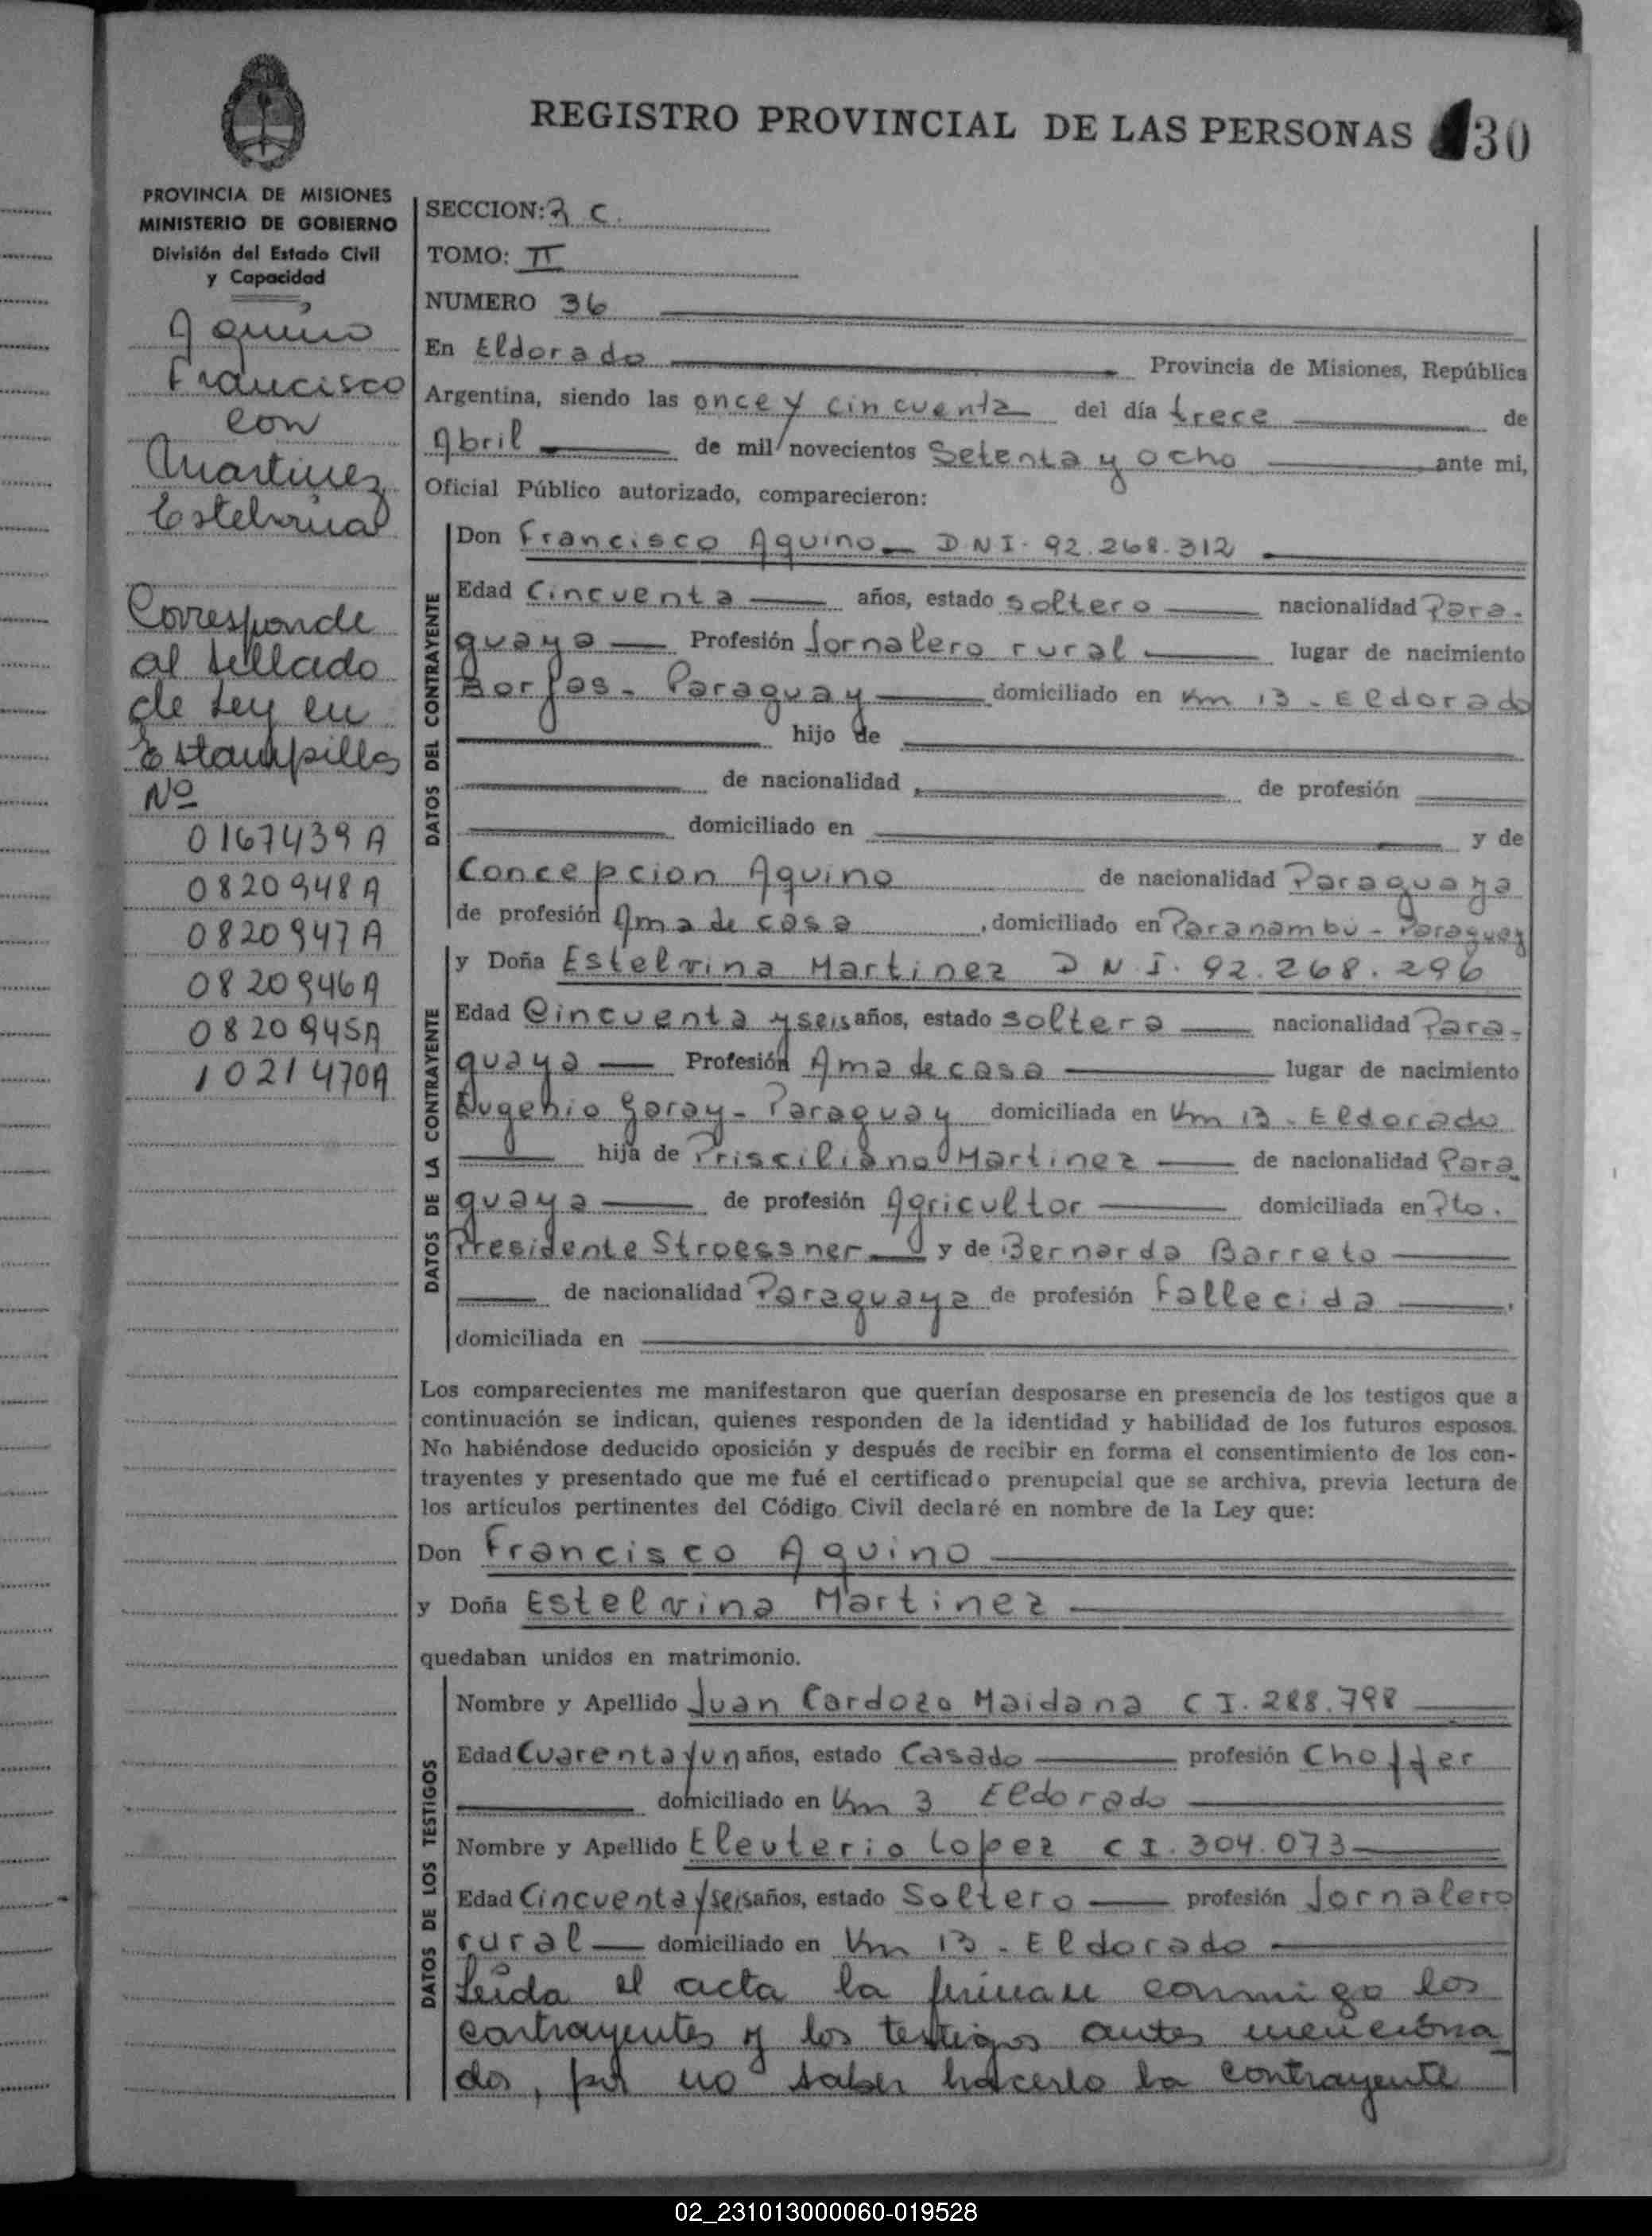 REGISTRO PROVINCIAL DE LAS PERSONAS 30
PROVINCIA DE MISIONES
MINISTERIO DE GOBIERNO
División del Estado Civil
y Capacidad
Aquino
Francisco
con
Martinez
Estelvina
Corresponde
al sellado
de Ley en
Estampillas
Nº
0167439 A
0820948 A
0820947 A
0820946 A
0820945 A
1021470 A
SECCION: C.
TOMO: II
NUMERO 36
En Eldorado Provincia de Misiones, República
Argentina, siendo las once y cincuenta del día trece de
Abril de mil novecientos Setenta y ocho ante mi,
Oficial Público autorizado, comparecieron:
DATOS DEL CONTRAYENTE
Don Francisco Aquino - D.N.I. 92.268.312
Edad Cincuenta años, estado soltero nacionalidad Para-
guaya Profesión Jornalero rural lugar de nacimiento
Borjas - Paraguay domiciliado en Km 13 - Eldorado
hijo de
de nacionalidad de profesión
domiciliado en y de
Concepcion Aquino de nacionalidad Paraguaya
de profesión Ama de casa, domiciliado en Paranambu - Paraguay
DATOS DE LA CONTRAYENTE
y Doña Estelvina Martinez D.N.I. 92.268.296
Edad Cincuenta y seis años, estado soltera nacionalidad Para-
guaya Profesión Ama de casa lugar de nacimiento
Eugenio Garay - Paraguay domiciliada en Km 13 - Eldorado
hija de Prisciliano Martinez de nacionalidad Para
guaya de profesión Agricultor domiciliada en Pto.
Presidente Stroessner y de Bernarda Barreto
de nacionalidad Paraguaya de profesión Fallecida,
domiciliada en
Los comparecientes me manifestaron que querían desposarse en presencia de los testigos que a
continuación se indican, quienes responden de la identidad y habilidad de los futuros esposos.
No habiéndose deducido oposición y después de recibir en forma el consentimiento de los con-
trayentes y presentado que me fué el certificado prenupcial que se archiva, previa lectura de
los artículos pertinentes del Código Civil declaré en nombre de la Ley que:
Don Francisco Aquino
y Doña Estelvina Martinez
quedaban unidos en matrimonio.
DATOS DE LOS TESTIGOS
Nombre y Apellido Juan Cardozo Maidana C I. 288.798
Edad Cuarenta y un años, estado Casado profesión Choffer
domiciliado en Km 3 Eldorado
Nombre y Apellido Eleuterio Lopez C I. 304.073
Edad Cincuenta y seis años, estado Soltero profesión Jornalero
rural domiciliado en Km 13 - Eldorado
Leida el acta la firman conmigo los
contrayentes y los testigos antes menciona
dos, por no saber hacerlo la contrayente
02_231013000060-019528